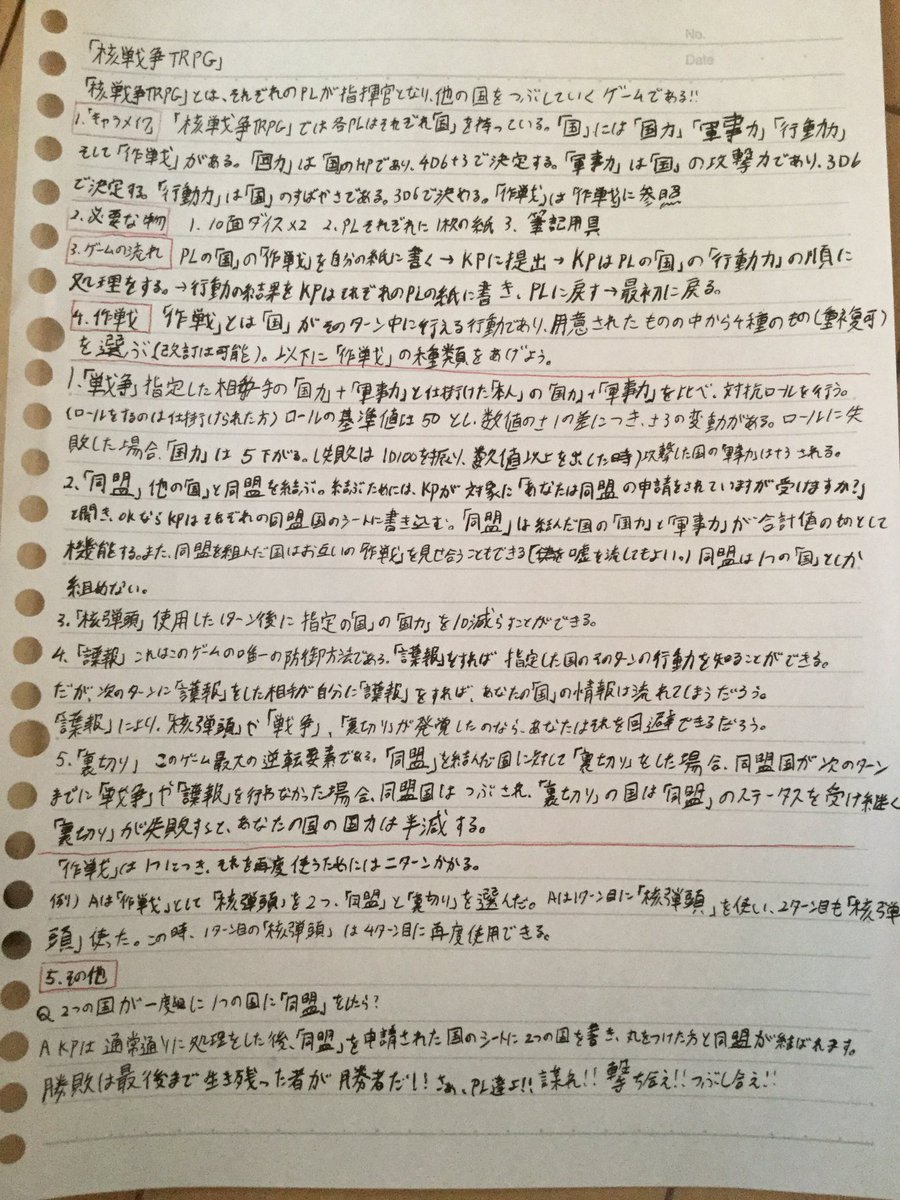 No.
Date
「核戦争TRPG」
「核戦争TRPG」とは、それぞれのPLが指揮官となり、他の国をつぶしていくゲームである!!
1.「キャラメイク」 「核戦争TRPG」では各PLはそれぞれ「国」を持っている。「国」には「国力」「軍事力」「行動力」
そして「作戦」がある。「国力」は「国」のHPであり、4D6+3で決定する。「軍事力」は「国」の攻撃力であり、3D6
で決定する。「行動力」は「国」のすばやさである。3D6で決める。「作戦」は「作戦」に参照
2.必要な物 1.10面ダイス×2 2.PLそれぞれに1枚の紙 3.筆記用具
3.ゲームの流れ PLの「国」の「作戦」を自分の紙に書く→KPに提出→KPはPLの「国」の「行動力」の順に
処理をする。→行動の結果をKPはそれぞれのPLの紙に書き、PLに戻す→最初に戻る。
4.作戦 「作戦」とは「国」がそのターン中に行える行動であり、用意されたものの中から4種のもの(重複可)
を選ぶ(改訂は可能)。以下に「作戦」の種類をあげよう。
1.「戦争」指定した相手の「国力」+「軍事力」と仕掛けた「本人」の「国力」+「軍事力」を比べ、対抗ロールを行う。
(ロールをするのは仕掛けられた方)ロールの基準値は50とし、数値の±1の差につき、±3の変動がある。ロールに失
敗した場合、「国力」は5下がる。(失敗は1D100を振り、数値以上を出した時)攻撃した国の「軍事力」は+5される。
2.「同盟」他の「国」と同盟を結ぶ。結ぶためには、KPが対象に「あなたは同盟の申請をされていますが受けますか?」
と聞き、OKならKPはそれぞれの同盟国のシートに書き込む。「同盟」は結んだ国の「国力」と「軍事力」が合計値のものとして
機能する。また、同盟を組んだ国はお互いの「作戦」を見せ合うこともできる(嘘を流してもよい。)同盟は1つの「国」としか
組めない。
3.「核弾頭」使用した1ターン後に指定の「国」の「国力」を10減らすことができる。
4.「諜報」これはこのゲームの唯一の防御方法である。「諜報」をすれば指定した国のそのターンの行動を知ることができる。
だが、次のターンに「諜報」をした相手が自分に「諜報」をすれば、あなたの「国」の情報は流れてしまうだろう。
「諜報」により、「核弾頭」や「戦争」、「裏切り」が発覚したのなら、あなたはそれを回避できるだろう。
5.「裏切り」このゲーム最大の逆転要素である。「同盟」を結んだ国に対して「裏切り」をした場合、同盟国が次のターン
までに「戦争」や「諜報」を行わなかった場合、同盟国はつぶされ、「裏切り」の国は「同盟」のステータスを受け継ぐ
「裏切り」が失敗すると、あなたの国の国力は半減する。
「作戦」は1つにつき、それを再度使うためには二ターンかかる。
例) Aは「作戦」として「核弾頭」を2つ、「同盟」と「裏切り」を選んだ。Aは1ターン目に「核弾頭」を使い、2ターン目も「核弾
頭」使った。この時、1ターン目の「核弾頭」は4ターン目に再度使用できる。
5.その他
Q 2つの国が一度に1つの国に「同盟」をしたら?
A KPは通常通りに処理をした後、「同盟」を申請された国のシートに2つの国を書き、丸をつけた方と同盟が結ばれます。
勝敗は最後まで生き残った者が勝者だ!!さぁ、PL達よ!!謀れ!!撃ち合え!!つぶし合え!!